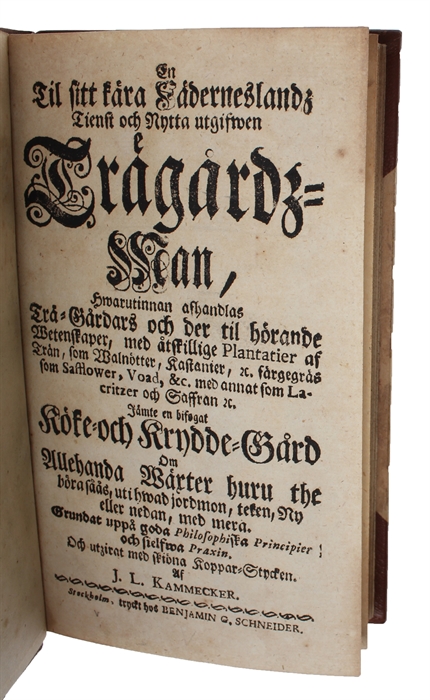 En
Til sitt kära Fäderneslandz
Tienst och Nytta utgifwen
Trägårdz=
Man,
Hwarutinnan afhandlas
Trä-Gårdars och der til hörande
Wetenskaper, med åtskillige Plantatier af
Trän, som Walnötter, Kastanier, ꝛc. färgegräs
som Safflower, Voad, &c. med annat som La-
critzer och Saffran ꝛc.
Jämte en bifogat
Köke-och Krydde-Gård
Om
Allehanda Wäxter huru the
böra sääs, uti hwad jordmon, teken, Ny
eller nedan, med mera.
Grundat uppå goda Philosophiska Principier
och sielfwa Praxin.
Och utzirat med skiöna Koppar-Stycken.
Af
J. L. KAMMECKER.
Stockholm, tryckt hos BENJAMIN G. SCHNEIDER.